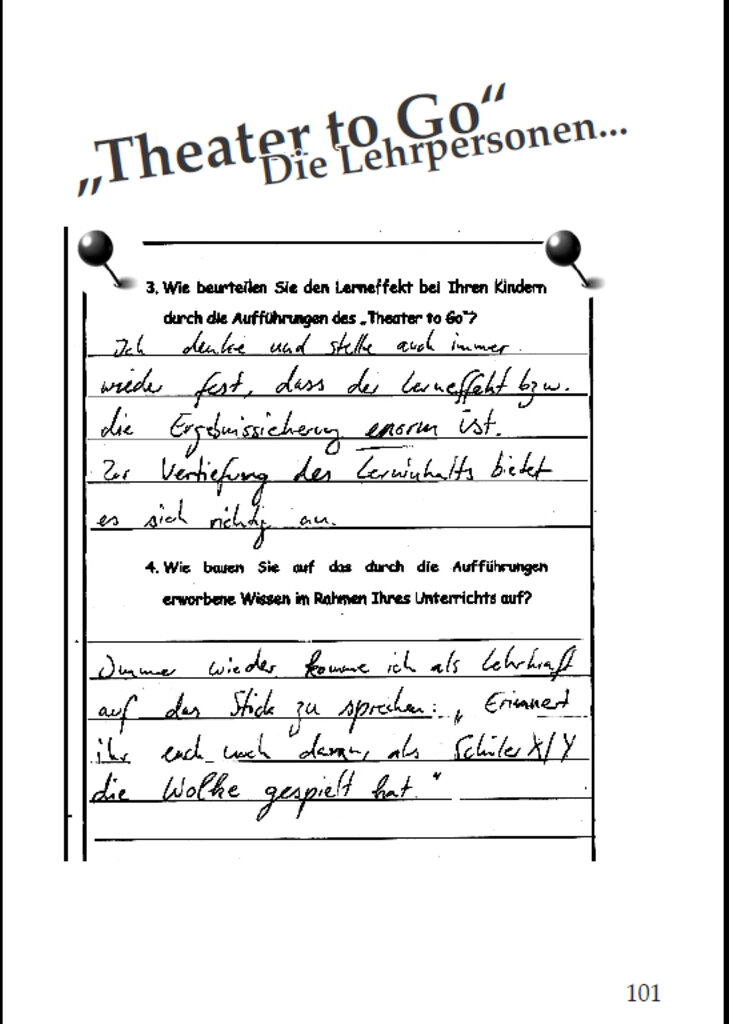 „Theater to Go“
Die Lehrpersonen...
3. Wie beurteilen Sie den Lerneffekt bei Ihren Kindern
durch die Aufführungen des „Theater to Go“?
Ich denke und stelle auch immer
wieder fest, dass der Lerneffekt bzw.
die Ergebnissicherung enorm ist.
Zur Vertiefung des Lerninhalts bietet
es sich richtig an.
4. Wie bauen Sie auf das durch die Aufführungen
erworbene Wissen im Rahmen Ihres Unterrichts auf?
Immer wieder komme ich als Lehrkraft
auf das Stück zu sprechen: „Erinnert
ihr euch noch daran, als Schüler X/Y
die Wolke gespielt hat."
101